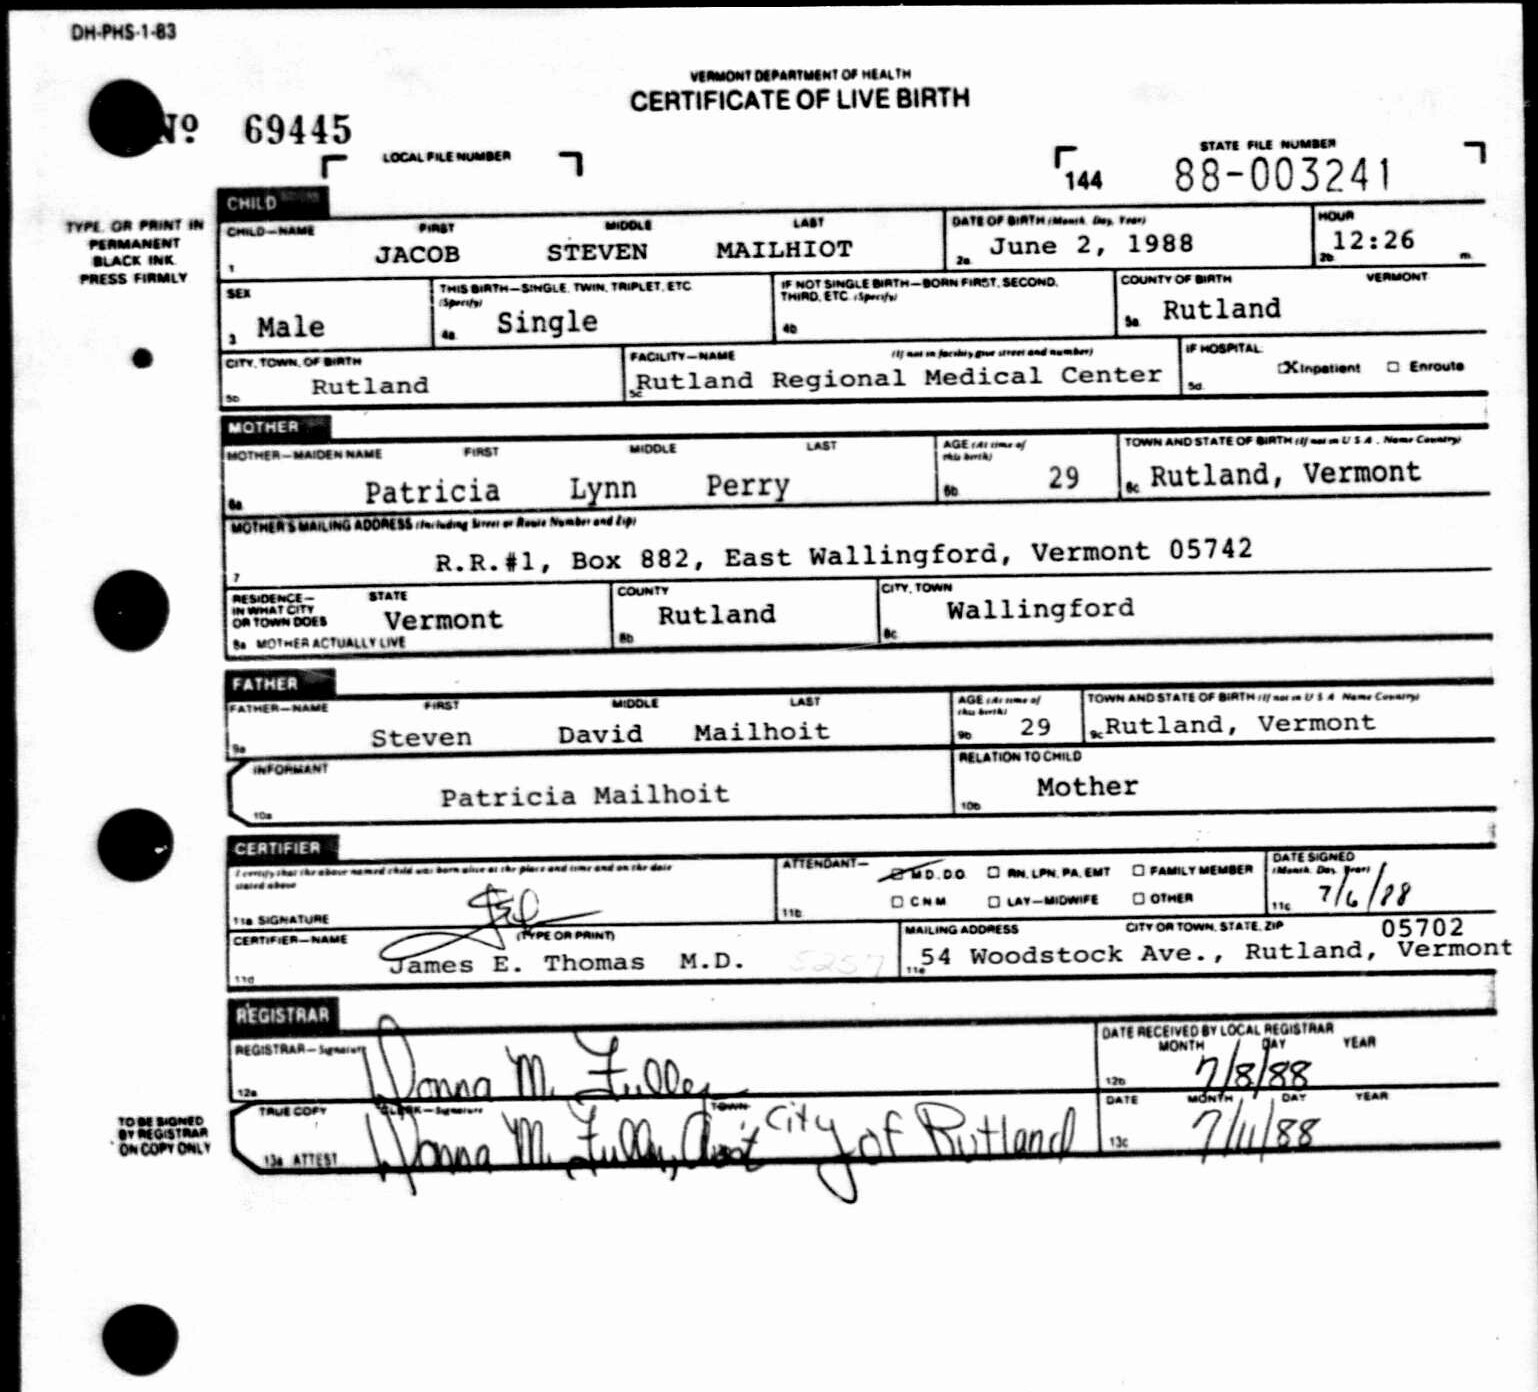 DH-PHS-1-83
VERMONT DEPARTMENT OF HEALTH
CERTIFICATE OF LIVE BIRTH
Nº 69445
LOCAL FILE NUMBER
STATE FILE NUMBER
144 88-003241
TYPE OR PRINT IN
PERMANENT
BLACK INK.
PRESS FIRMLY
CHILD
CHILD—NAME FIRST MIDDLE LAST
1 JACOB STEVEN MAILHIOT
DATE OF BIRTH (Month, Day, Year)
2a June 2, 1988
HOUR
2b 12:26 m.
SEX
3 Male
THIS BIRTH—SINGLE, TWIN, TRIPLET, ETC
(Specify)
4a Single
IF NOT SINGLE BIRTH—BORN FIRST, SECOND,
THIRD, ETC. (Specify)
4b
COUNTY OF BIRTH VERMONT
5a Rutland
CITY, TOWN, OF BIRTH
5b Rutland
FACILITY—NAME (If not in facility give street and number)
5c Rutland Regional Medical Center
IF HOSPITAL:
5d X Inpatient Enroute
MOTHER
MOTHER—MAIDEN NAME FIRST MIDDLE LAST
6a Patricia Lynn Perry
AGE (At time of
this birth)
6b 29
TOWN AND STATE OF BIRTH (If not in U S A , Name Country)
6c Rutland, Vermont
MOTHER'S MAILING ADDRESS (Including Street or Route Number and Zip)
7 R.R.#1, Box 882, East Wallingford, Vermont 05742
RESIDENCE—
IN WHAT CITY
OR TOWN DOES
8a MOTHER ACTUALLY LIVE
STATE
Vermont
COUNTY
8b Rutland
CITY, TOWN
8c Wallingford
FATHER
FATHER—NAME FIRST MIDDLE LAST
9a Steven David Mailhoit
AGE (At time of
this birth)
9b 29
TOWN AND STATE OF BIRTH (If not in U S A Name Country)
9c Rutland, Vermont
INFORMANT
10a Patricia Mailhoit
RELATION TO CHILD
10b Mother
CERTIFIER
I certify that the above named child was born alive at the place and time and on the date
stated above
11a SIGNATURE
ATTENDANT—
M D , D O RN, LPN, PA, EMT FAMILY MEMBER
11b C N M LAY—MIDWIFE OTHER
DATE SIGNED
(Month, Day, Year)
11c 7/6/88
CERTIFIER—NAME (TYPE OR PRINT)
11d James E. Thomas M.D. 5257
MAILING ADDRESS CITY OR TOWN, STATE, ZIP 05702
11e 54 Woodstock Ave., Rutland, Vermont
REGISTRAR
REGISTRAR—Signature
12a Donna M. Fuller
DATE RECEIVED BY LOCAL REGISTRAR
MONTH DAY YEAR
12b 7/8/88
TO BE SIGNED
BY REGISTRAR
ON COPY ONLY
TRUE COPY CLERK—Signature TOWN
13a ATTEST Donna M. Fuller, Asst City of Rutland
DATE MONTH DAY YEAR
13c 7/11/88